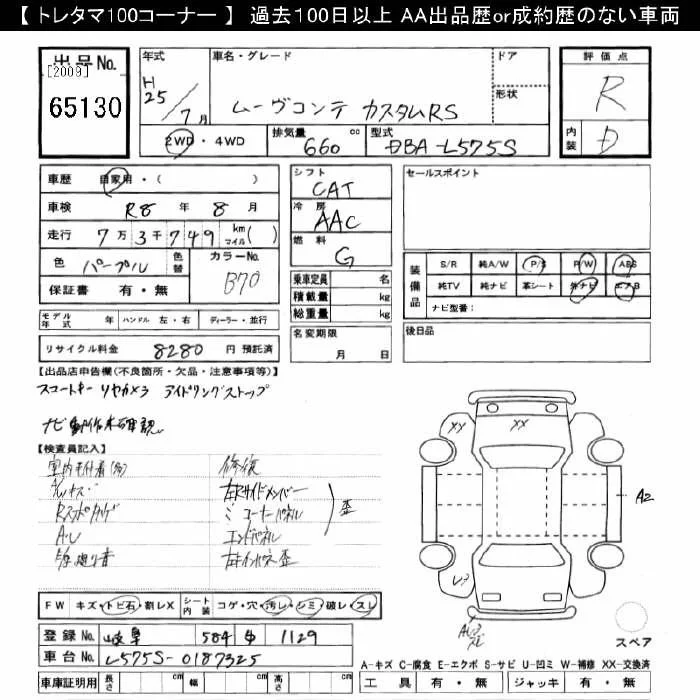 【 トレタマ100コーナー 】 過去100日以上 AA出品歴or成約歴のない車両
出品No.
[2009]
65130
年式
H25/7月
車名・グレード
ムーヴコンテ カスタムRS
ドア
形状
2WD・4WD
排気量 660 cc
型式 DBA-L575S
評価点
R
内装 D
車歴 自家用・( )
車検 R8年 8月
走行 7万3千749 km マイル( )
色 パープル 色替
カラーNo. B70
保証書 有・無
シフト
CAT
冷房
AAC
燃料
G
乗車定員 名
積載量 kg
総重量 kg
セールスポイント
装備品
S/R 純A/W P/S P/W ABS
純TV 純ナビ 革シート 外ナビ エアB
ナビ型番:
モデル年式 年 ハンドル 左・右 ディーラー・並行
リサイクル料金 8280 円 預託済
名変期限
月 日
後日品
【出品店申告欄(不良箇所・欠品・注意事項等)】
スマートキー リヤカメラ アイドリングストップ
ナビ動作未確認
【検査員記入】
修復
左Rサイドメンバー
〃 コーナーパネル
エンドパネル
歪
XX
XX
A2
FW キズ・トビ石・割レX シート内装 コゲ・穴・汚レ・シミ・破レ・スレ
登録No. 岐阜 584 1129
車台No. L575S-0187325
車庫証明用 長さ cm 幅 cm 高さ cm
スペア
A-キズ C-腐食 E-エクボ S-サビ U-凹ミ W-補修 XX-交換済
工具 有・無 ジャッキ 有・無